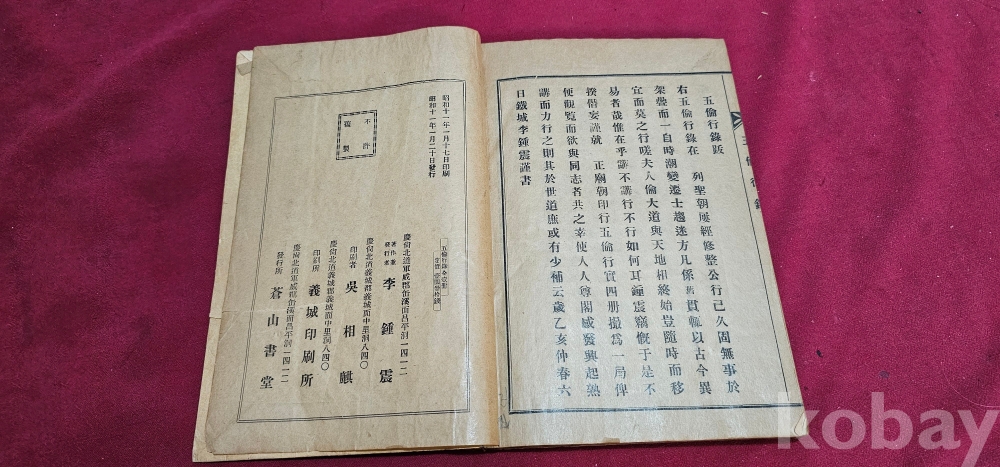 五倫行錄跋
右五倫行錄在　列聖朝屢經修整公行已久固無事於
架疊而一自時潮變遷士趨迷方凡係舊貫輒以古今異
宜而莫之行嗟夫人倫大道與天地相終始豈隨時而移
易者哉惟在乎講不講行不行如何耳鍾震竊慨于是不
揆僭妄謹就　正廟朝印行五倫行實四册撮爲一局俾
便觀覧而欲與同志者共之幸使人人尊閣感發興起熟
講而力行之則其於世道庶或有少補云歲乙亥仲春六
日鐵城李鍾震謹書
五倫行錄
昭和十一年一月十七日印刷
昭和十一年一月二十日發行
不許
複製
五倫行錄全壹册
慶尙北道軍威郡缶溪面昌平洞一四一二
著作兼
發行者　李鍾震
慶尙北道義城郡義城面中里洞八四〇
印刷者　吳相麒
慶尙北道義城郡義城面中里洞八四〇
印刷所　義城印刷所
慶尙北道軍威郡缶溪面昌平洞一四一二
發行所　蒼山書堂
kobay